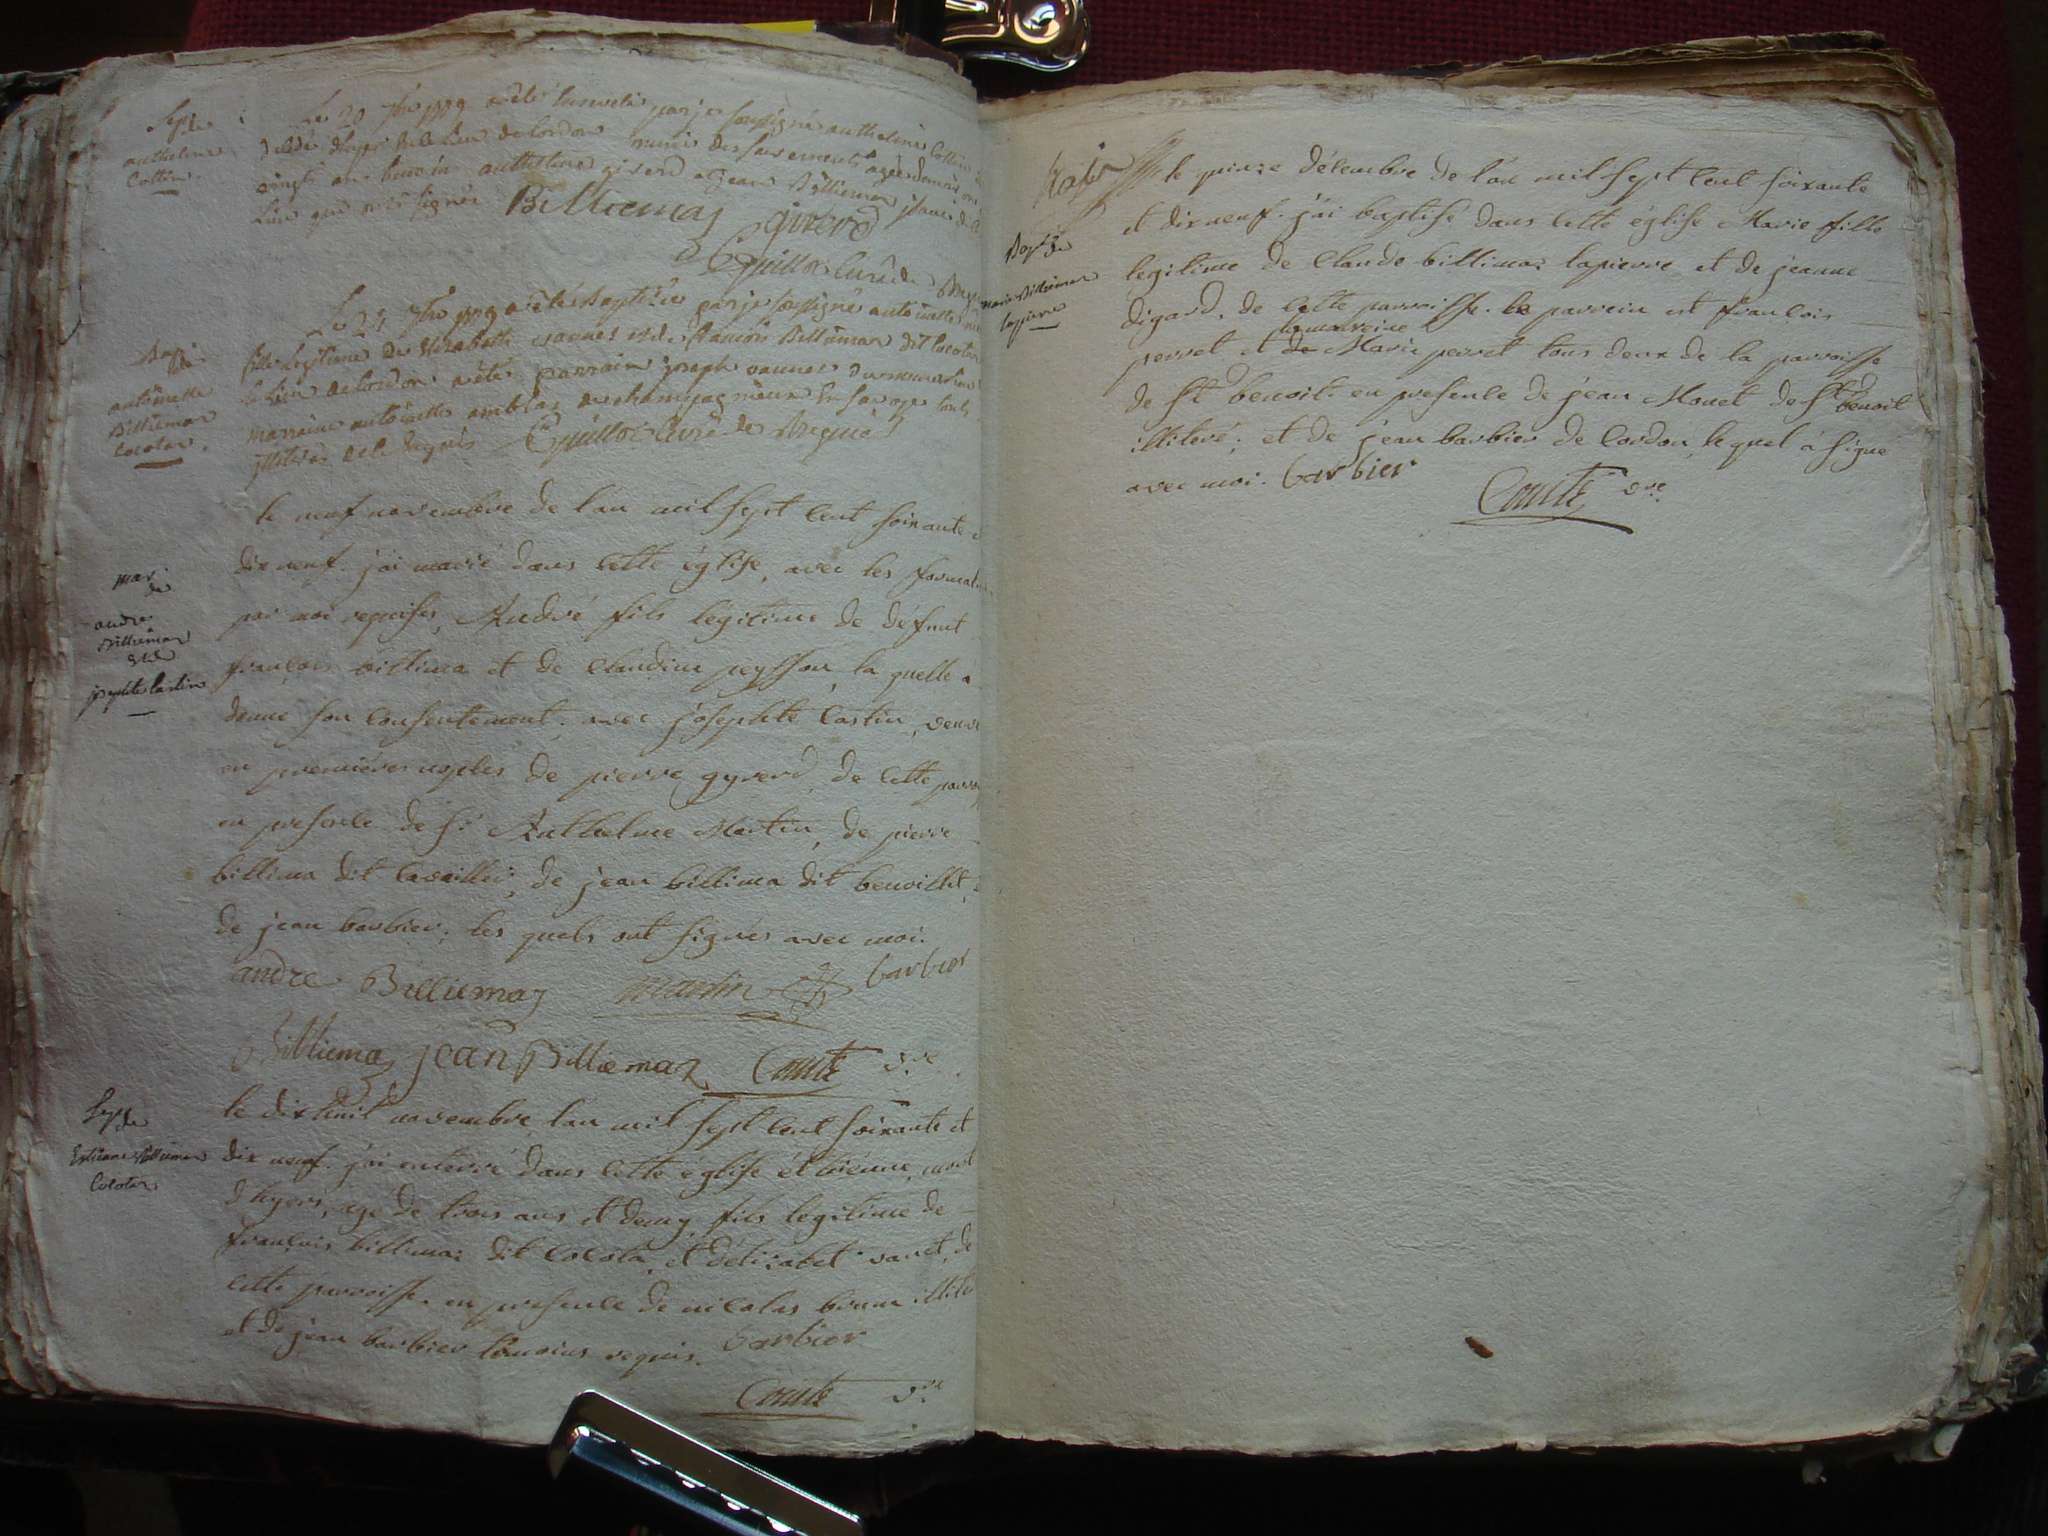 Sep.
de
anthelme
Cottin
Le 20 7bre 1779 a été ensevelie par je soussigné anthelme Cottin
vingt ans munie des sacrements
lieu qui ont signés Billiemaz girerd
Guillot Curé de Bregnier
Bapt.
de
antoinette
Billiemaz
Cocolaz
Le 24 7bre 1779 a été Baptisée par je soussigné antoinette
fille legitime de Elizabeth vannet et de francois Billiemaz dit Cocolaz
le lieu de Cordon a été parrain joseph vannet
marraine antoinette amblaz de champagnieux En Savoye touts
illitérés et le requis Guillot Curé de Bregnier
mar.
de
andre
Billiemaz
et de
josephte Castin
le neuf novembre de l'an mil sept cent soixante et
dix neuf. j'ai marié dans cette église, avec les formalités
par moi requises, André fils légitime de défunt
françois billima et de Claudine peysson, la quelle a
donné son consentement. avec josephte Castin, veuve
en premières nopces de pierre gyrerd, de cette parroisse
en presence de Sr. Anthelme Martin, de pierre
billima dit Cavaillé, de jean billima dit benoillet,
de jean barbier; les quels ont signés avec moi.
andre Billiemaz martin barbier
Billiemaz jean Billiemaz Comte vre.
Sep.
de
Estienne Billiemaz
Cocolaz
le dixhuit novembre l'an mil sept cent soixante et
dix neuf. j'ai enterré dans cette église étienne, mort
d'hyers, agé de trois ans et demy, fils legitime de
françois billimaz dit Cocola, et d'elizabet vanet, de
cette parroisse. en presence de nicolas brun illiteré
et de jean barbier témoins requis. barbier
Comte vre.
Bapt.
de
marie Billiemaz
lapierre
le quinze décembre de l'an mil sept cent soixante
et dix neuf. j'ai baptisé dans cette église Marie fille
legitime de Claude billimaz lapierre et de jeanne
digard, de cette parroisse. le parrein est françois
la marreine
perret et de Marie perret tous deux de la parroisse
de St benoit. en presence de jean Monet de St benoit
illiteré; et de jean barbier de Cordon, lequel a signé
avec moi. barbier
Comte vre.